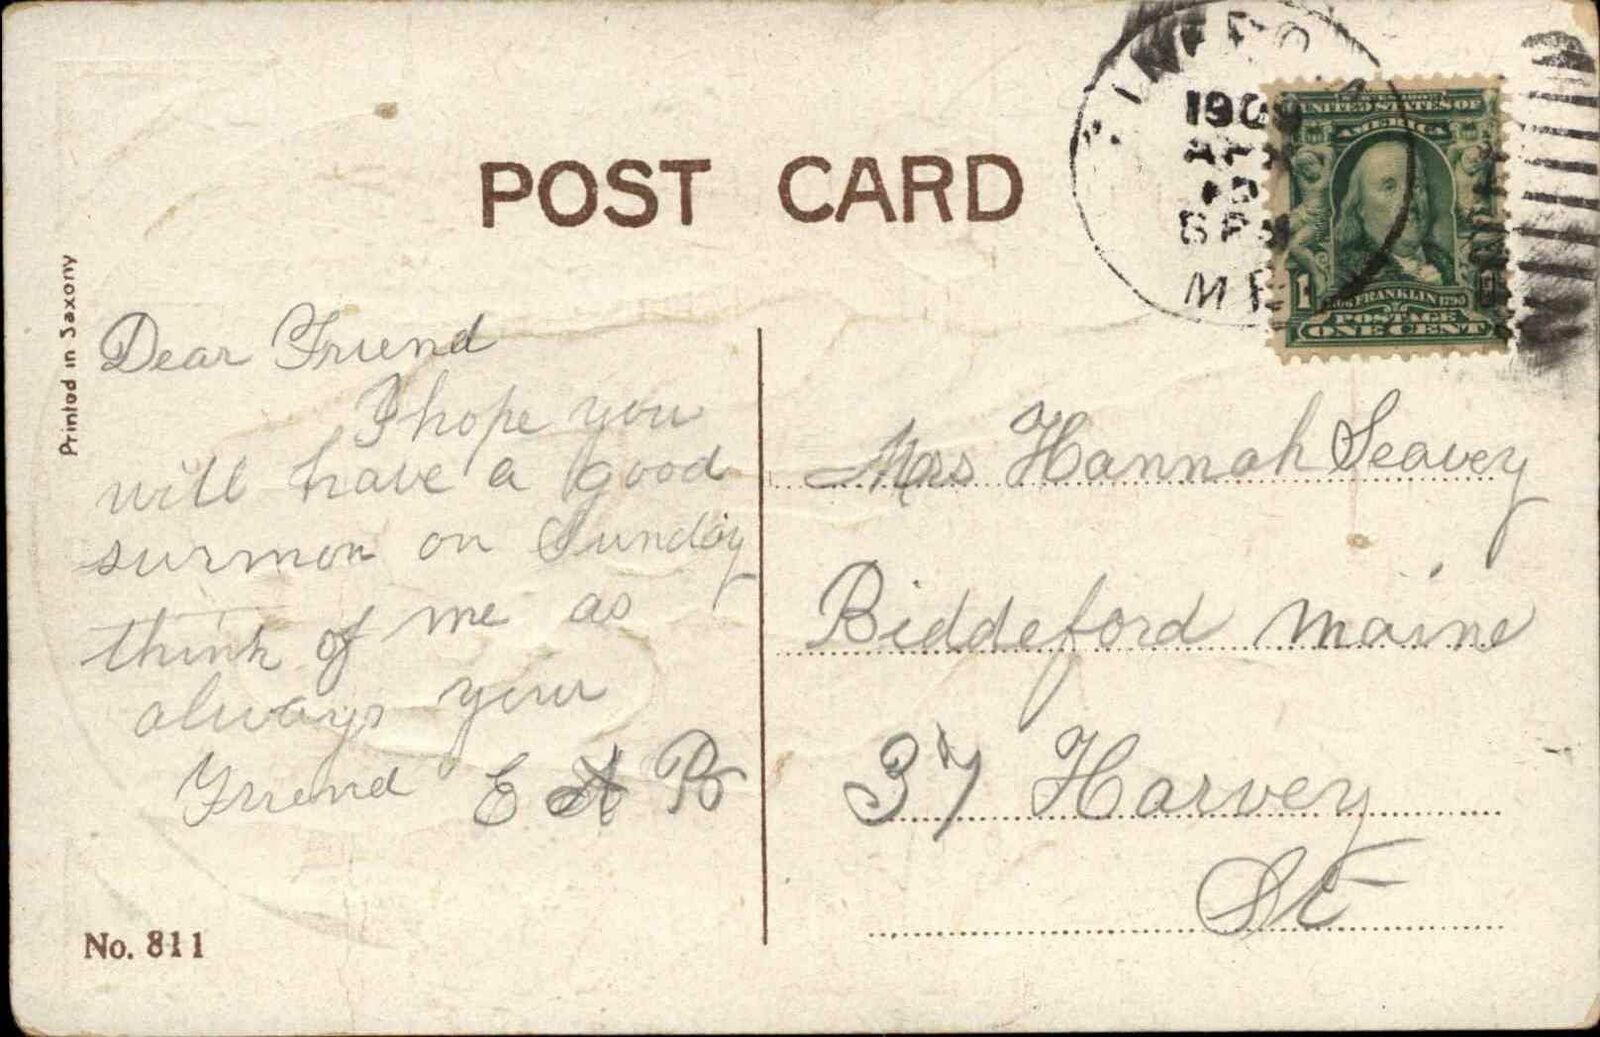 POST CARD
Printed in Saxony
1909
5 PM
ME
UNITED STATES OF
AMERICA
1
FRANKLIN 1790
POSTAGE
ONE CENT
Dear Friend
I hope you
will have a good
surmon on Sunday
think of me as
always your
Friend E A B
No. 811
Mrs Hannah Seavey
Biddeford Maine
37 Harvey
St